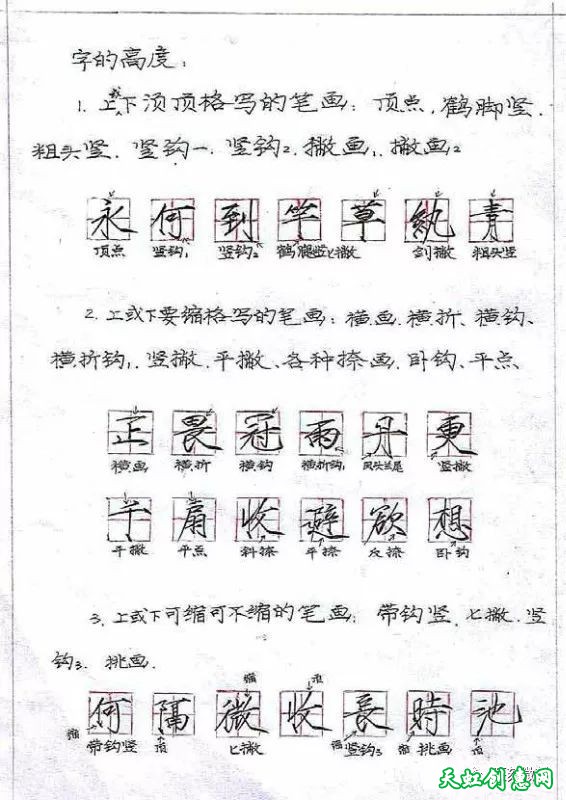 字的高度：
1. 上或下须顶格写的笔画：顶点，鹤脚竖，
粗头竖．竖钩一．竖钩2．撇画1．撇画2
永 何 到 竿 草 執 青
顶点 竖钩1 竖钩2 鹤腿竖 匕撇 剑撇 粗头竖
2. 上或下要缩格写的笔画：横画．横折、横钩、
横折钩1．竖撇．平撇、各种捺画．卧钩、平点
正 畏 冠 雨 丹 更
横画 横折 横钩 横折钩1 竖撇
千 扇 收 避 欲 想
平撇 平点 斜捺 平捺 反捺 卧钩
3. 上或下可缩可不缩的笔画：带钩竖．匕撇．竖
钩3．挑画．
缩 顶
何 隔 微 收 長 時 池
缩 带钩竖 顶 匕撇 缩 竖钩3 缩 挑画 顶
天虹创意网